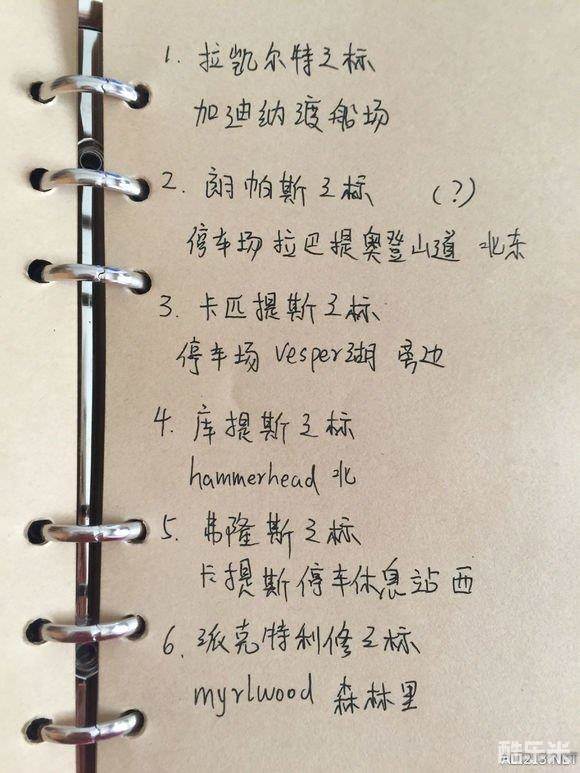 1. 拉凯尔特之标
加迪纳渡船场
2. 朗帕斯之标 (?)
停车场拉巴提奥登山道 北东
3. 卡匹提斯之标
停车场 Vesper湖 旁边
4. 库提斯之标
hammerhead 北
5. 弗隆斯之标
卡提斯停车休息站 西
6. 派克特利修之标
myrlwood 森林里
酷乐米